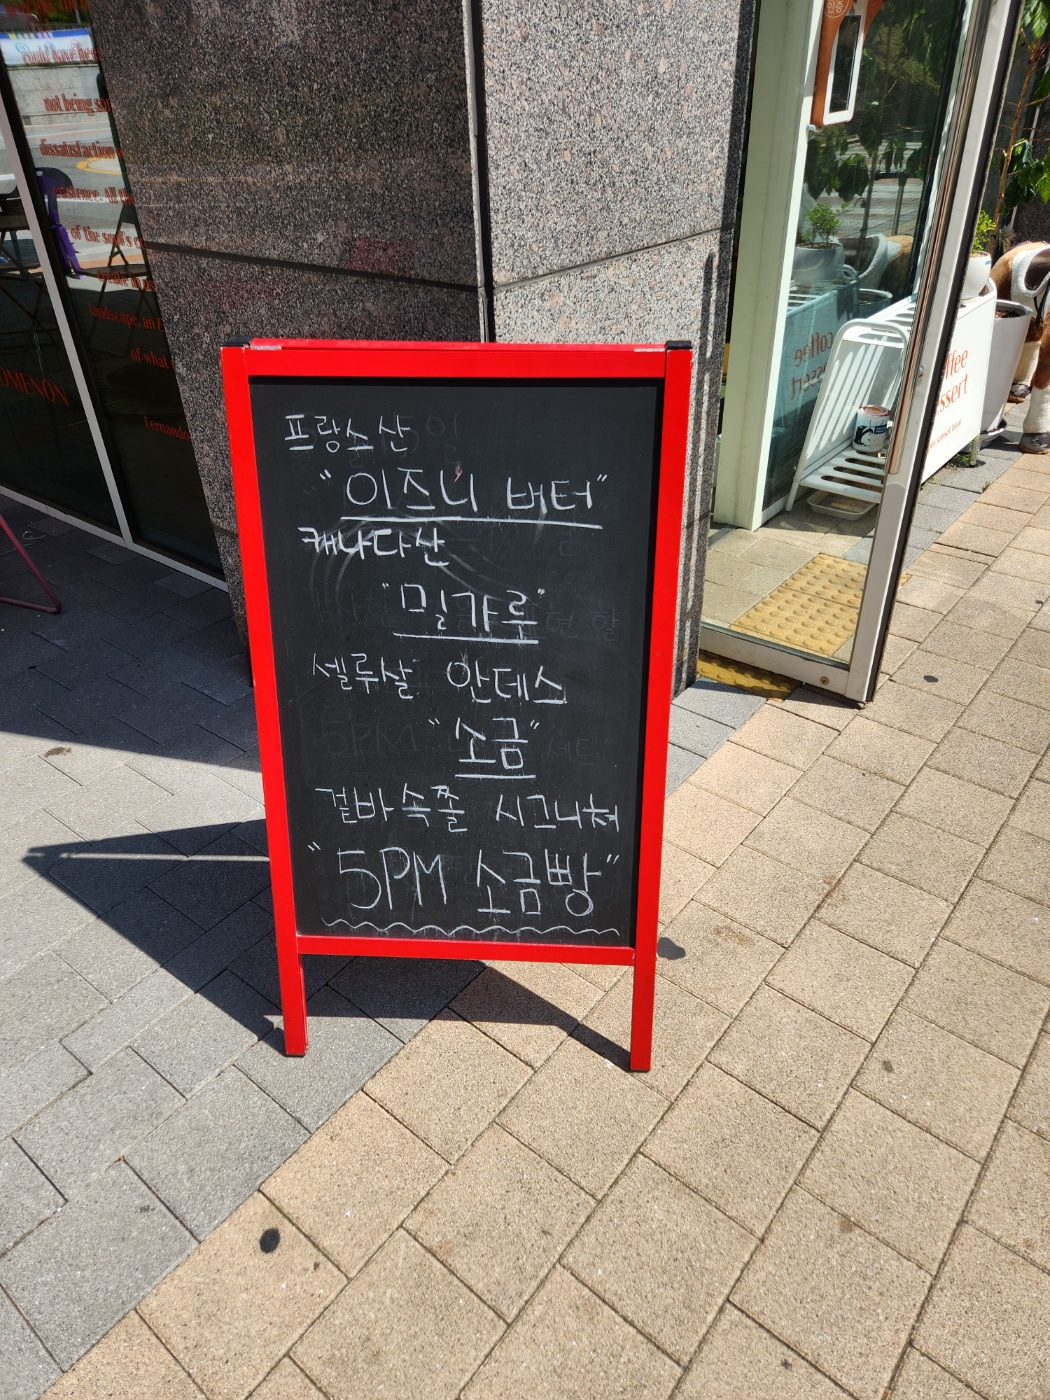 프랑스산
"이즈니 버터"
캐나다산
"밀가루"
셀루살 안데스
"소금"
겉바속쫄 시그니처
"5PM 소금빵"
not being
dissatisfaction
existence. All
of the soul's
landscape, an
of what
OMENON
Fernando
인증
coffee
dessert
ffee
ssert